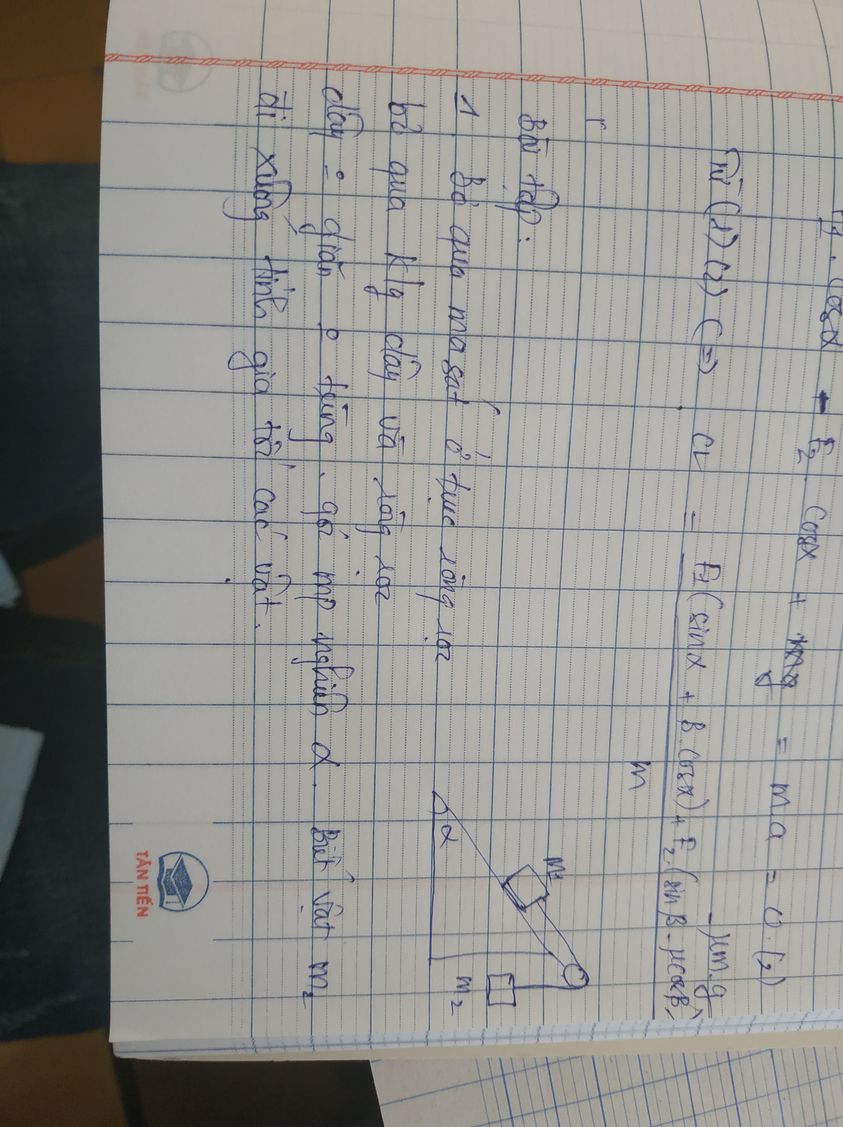 F1. cosα - F2 cosα + mg = ma = 0 (2)
Từ (1) (2) (=> a = F1(sinα + B.cosα) + F2.(sinβ - μcosβ) - μm.g
m
Bài tập:
1. Bỏ qua ma sát ở trục ròng rọc
bỏ qua klg dây và ròng rọc
dây o giãn o tùng. góc mp nghiên α. Biết vật m2
đi xuống tính gia tốc các vật.
m1
α
m2
TÂN TIẾN